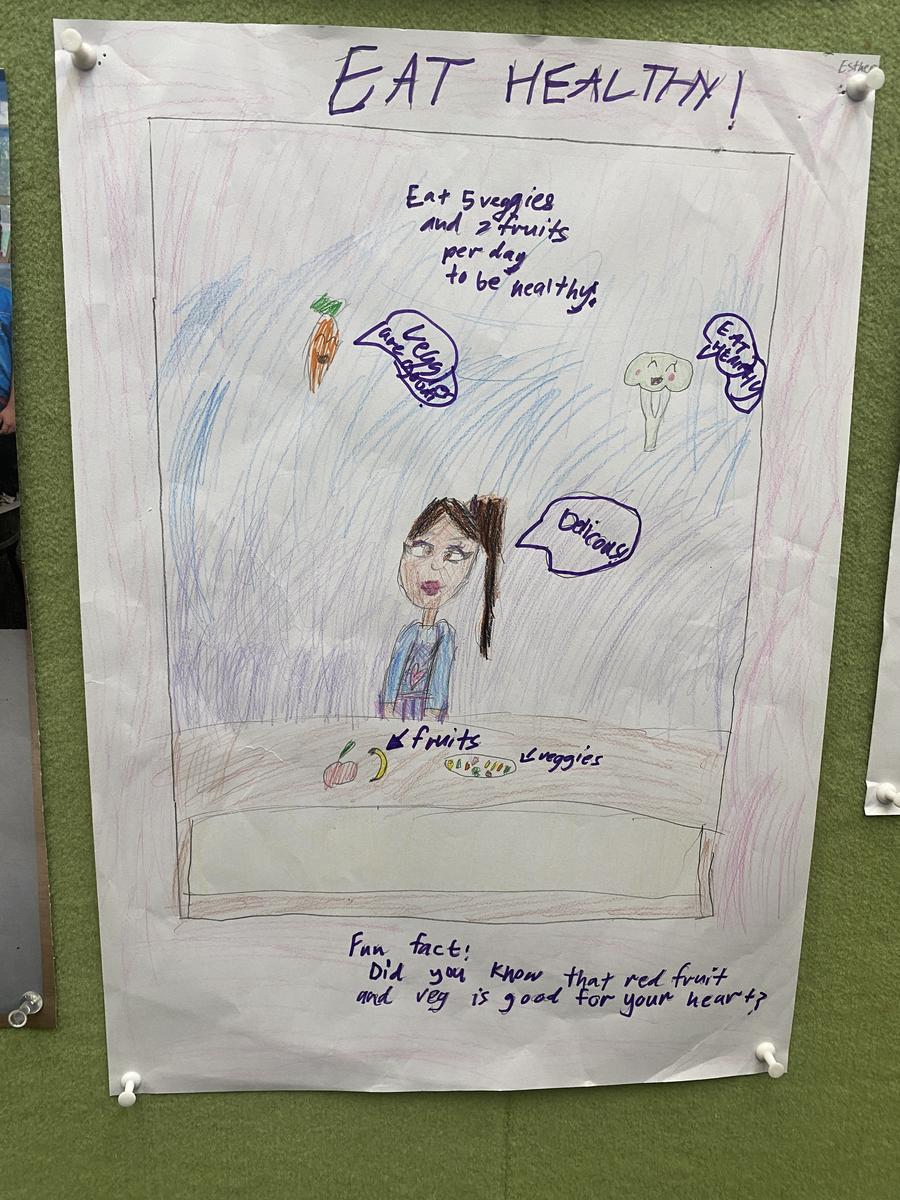 EAT HEALTHY!
Esther
Eat 5 veggies
and 2 fruits
per day
to be healthy!
Vegg
are
EAT
HEALTHY
Delicous!
fruits
veggies
Fun fact!
Did you know that red fruit
and veg is good for your heart?